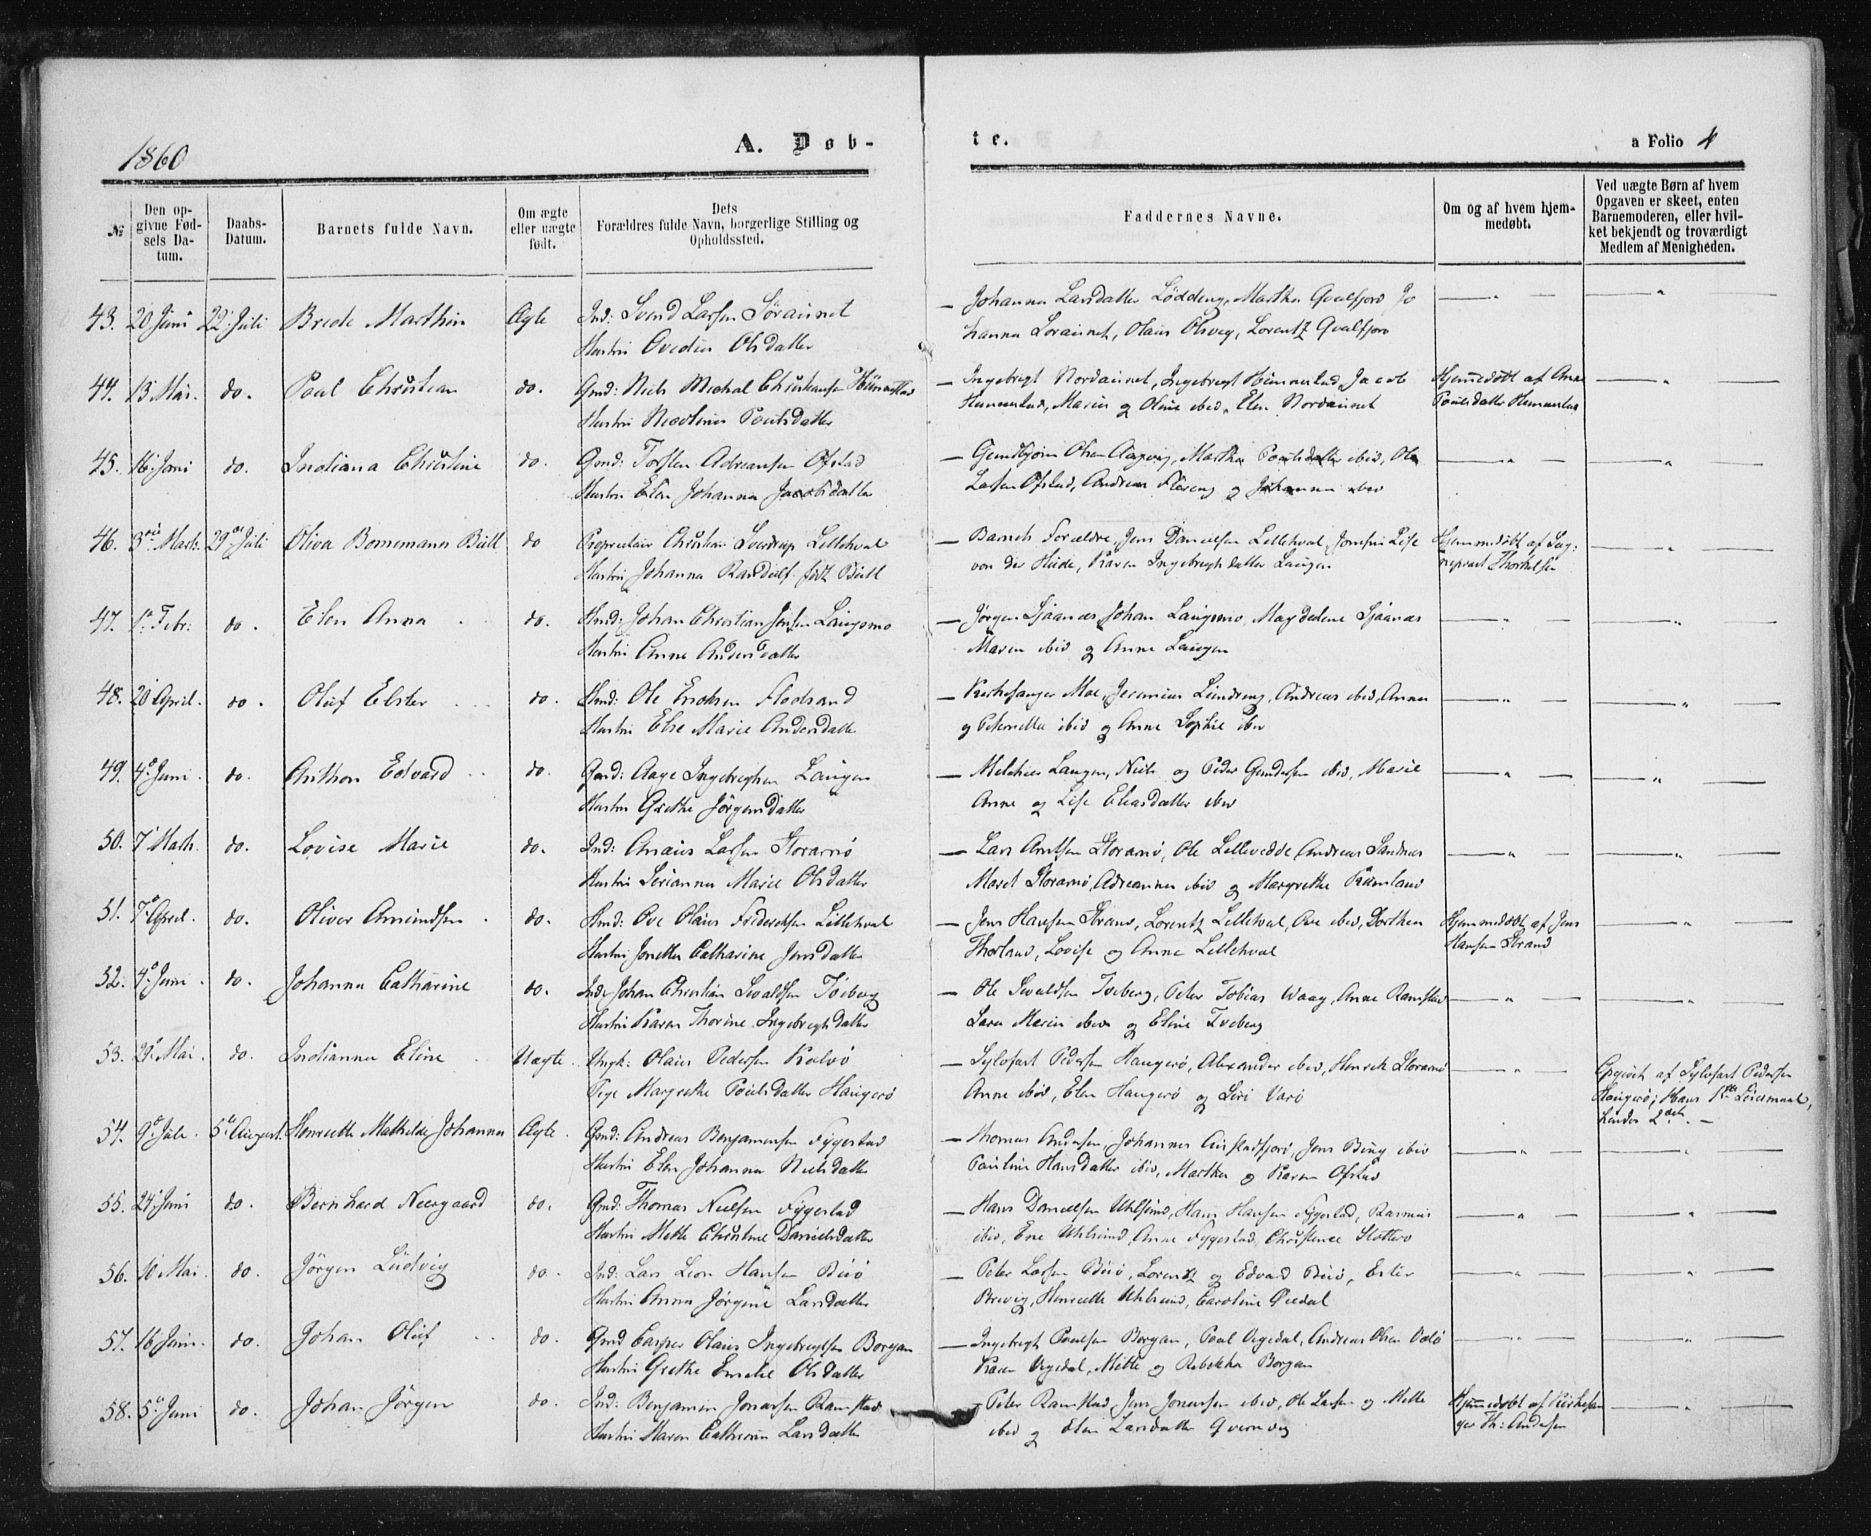 1860
A. Døb-
te.
a Folio 4
№
Den op-
givne Fød-
sels Da-
tum.
Daabs-
Datum.
Barnets fulde Navn.
Om ægte
eller uægte
født.
Dets
Forældres fulde Navn, borgerlige Stilling og
Opholdssted.
Faddernes Navne.
Om og af hvem hjem-
medøbt.
Ved uægte Børn af hvem
Opgaven er skeet, enten
Barnemoderen, eller hvil-
ket bekjendt og troværdigt
Medlem af Menigheden.
43. 20 Juni 22 Juli Brede Marthin Ægte Ind: Svend Larsen Søraunet
Hustru Ovedia Olsdatter
— Johanna Larsdatter Løddeng, Martha Qvalfjord Jo
hanna Soraunet, Olaus Olsveg, Lorentz Qvalfjord
44. 13 Mai. do. Poul Christian do. Gmd: Niels Michal Christiansen Hummelstad
Hustru Poulsdatter
— Ingebregt Nordaunet, Ingebregt Hummelstad, Jacob
Marius og Oline ibid, Elen Nordaunet
Hjemmedøbt af Anne
Poulsdatter
45. 16 Juni do. Indiana Christine do. Gmd: Torsten Adreansen Ofstad
Hustru Elen Johanna Jacobsdatter
— Olsen Martha Poulsdatter ibid, Ole
Larsen Ofstad, Andreas Flereng og Johanna ibid
46. 3die Marts. 29de Juli Oliva Bornemann Bull do Proprietair Christian Sverdrup Lillehval
Hustru Johanna Randulf født Bull
— Barnets Forældre, Jens Danielsen Lillehval, Josefine Lise
von der Hude, Karen Ingebregtsdatter Laugen
Hjemmedøbt af Sog:
nepræst Thorkelsen
47. 1te Febr: do. Elen Anna do. Hmd: Johan Christian Jensen Laugsmo
Hustru Anne Andersdatter
— Jørgen Sjaanæs, Johan Laugsmo, Magdelene Sjaanæs
Maren ibid og Anne Laugen
48. 20 April. do. Oluf Elster do. Hmd: Ole Erichsen Flodsand
Hustru Else Marie Andersdatter
— Kirkesanger Moe, Jeremias Lundreng, Andreas ibid, Anna
og Peternella ibid og Anne Sophie ibid
49. 4de Juni do. Anthon Edvard do. Gmd: Aage Ingebregtsen Laugen
Hustru Grethe Jørgensdatter
— Melchior Laugen, Niels og Peder Gundersen ibid, Marie
Anne og Lise Eliasdatter ibid
50. 7 Marts. do. Lovise Marie do. Ind: Anaus Larsen Storarnø
Hustru Serianna Marie Olsdatter
— Lars Arntsen Storarnø, Ole Lillevedde, Andreas Sandnæs
Maret Storarnø, Adreanna ibid og Margrethe Ramstad
51. 7 April. do. Oliver Amundsen do. Hmd: Ove Olaus Fredriksen Lillehval
Hustru Jonetta Catharine Jensdatter
— Jens Hansen Strand, Lorentz Lillehval, Ove ibid, Dorthea
Thorland, Lovise og Anne Lillehval
Hjemmedøbt af Jens
Hansen Strand
52. 4de Juni do. Johanna Catharine do. Ind: Johan Christian Sivaldsen Tveberg
Hustru Karen Thorine Ingebregtsdatter
— Ole Sivaldsen Tveberg, Peter Tobias Waag, Anne Ramstad
Sara Maria ibid og Eline Tveberg
53. 29 Mai. do. Indianna Eline Uægte Ungk: Olaus Pedersen Kalvø
Pige Margrethe Poulsdatter Haugerø
— Sylofast Pedersen Haugerø, Alexander ibid, Henrik Storarnø
Anne ibid, Elen Haugerø og Siri Varø
Opgivet af Sylofast Pedersen
Haugerø; Hans 1ste Leiermaal,
hendes 2det. —
54. 9de Juli. 5te August. Henriette Mathilde Johanna Ægte. Gmd: Andreas Benjaminsen Fygestad
Hustru Elen Johanna Nielsdatter
— Thomas Andersen, Johannes Jens Bing ibid
Pauline Hansdatter ibid, Martha og Karen Ofstad
55. 24 Juni do. Bernhard Neergaard do. Gmd: Thomas Nielsen Fygestad
Hustru Mette Christine Danielsdatter
— Hans Danielsen Uhlsund, Hans Hansen Fygestad, Rasmus
ibid, Ene Uhlsund, Anne Fygestad, Christence Slotterø
56. 10 Mai. do. Jørgen Ludvig do. Ind: Lars Leon Hansen Buø
Hustru Anna Jørgine Larsdatter
— Peter Larsen Buø, Lorentz og Edvard Buø, Ester
Brevig, Henriette Uhlsund, Caroline Qvedal
57. 16 Juni. do. Johan Oluf do. Gmd Casper Olaus Ingebregtsen Borgan
Hustru Grethe Emilie Olsdatter
— Ingebregt Poulsen Borgan, Poul Vegedal, Andreas Olsen Vedø
Karen Vegedal, Mette og Rebekka Borgan
58. 5te Juni do. Johan Jørgen do. Ind: Benjamin Jonassen Ramstad
Hustru Maren Cathrine Larsdatter
— Peter Ramstad, Jens Jonassen ibid, Ole Larsen og Mette
ibid og Elen Larsdatter Qvernvig
Hjemmedøbt af Kirkesan
ger Th: Andersen